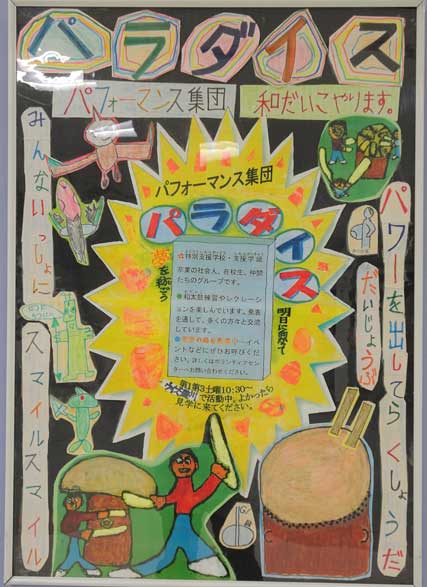 パラダイス
パフォーマンス集団
和だいこやります。
みんないっしょに
スマイルスマイル
パフォーマンス集団
パラダイス
夢を紡ごう
明日に向かって
☆特別支援学校・支援学級
卒業の社会人、在校生、仲間
たちのグループです。
●和太鼓練習やレクレーシ
ョンを楽しんでいます。発表
を通して、多くの方々と交流
しています。
イ
ベントなどにぜひお呼びくだ
さい。詳しくはボランティアセン
ターへお問い合わせください。
第1第3土曜10:30～
で活動中。よかったら
見学に来てください。
パワーを出してらくしょうだ
だいじょうぶ